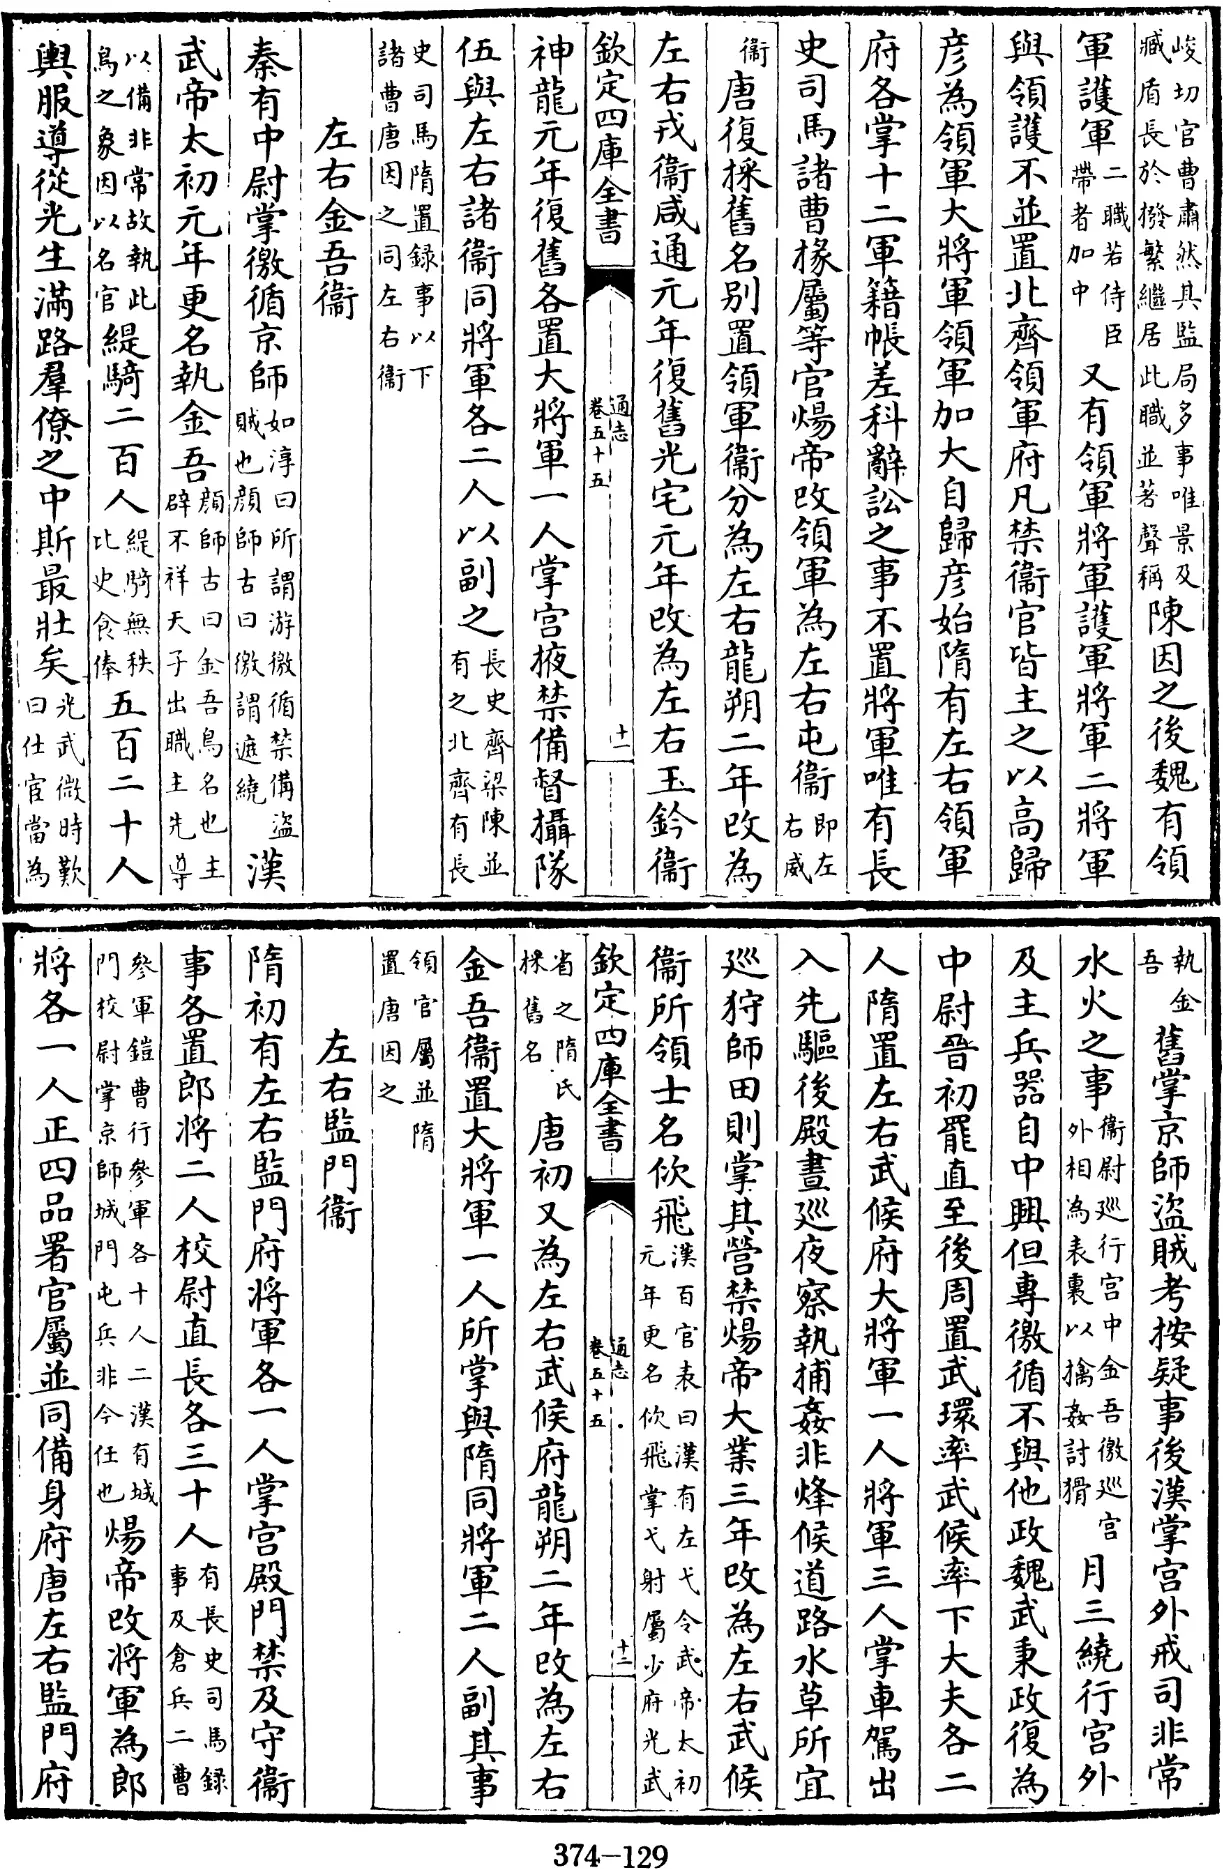 峻切官曹肅然其監局多事唯景及臧盾長於撥繁繼居此職並著聲稱陳因之後魏有領
軍護軍二職若侍臣帶者加中又有領軍將軍護軍將軍二將軍
與領護不並置北齊領軍府凡禁衞官皆主之以高歸
彦為領軍大將軍領軍加大自歸彦始隋有左右領軍
府各掌十二軍籍帳差科辭訟之事不置將軍唯有長
史司馬諸曹掾屬等官煬帝改領軍為左右屯衞即左右威
衞唐復採舊名別置領軍衞分為左右龍朔二年改為
左右戎衞咸通元年復舊光宅元年改為左右玉鈐衞
欽定四庫全書
通志
卷五十五
十一
神龍元年復舊各置大將軍一人掌宮掖禁備督攝隊
伍與左右諸衞同將軍各二人以副之長史齊梁陳並有之北齊有長
史司馬隋置録事以下諸曹唐因之同左右衞
左右金吾衞
秦有中尉掌徼循京師如淳曰所謂游徼循禁備盜賊也顔師古曰徼謂遮繞漢
武帝太初元年更名執金吾顔師古曰金吾鳥名也主辟不祥天子出職主先導
以備非常故執此鳥之象因以名官緹騎二百人緹騎無秩比吏食俸五百二十人
輿服導從光生滿路羣僚之中斯最壯矣光武微時歎曰仕宦當為
執金吾舊掌京師盜賊考按疑事後漢掌宮外戒司非常
水火之事衞尉巡行宮中金吾徼巡宮外相為表裏以擒姦討猾月三繞行宮外
及主兵器自中興但專徼循不與他政魏武秉政復為
中尉晉初罷直至後周置武環率武候率下大夫各二
人隋置左右武候府大將軍一人將軍三人掌車駕出
入先驅後殿晝巡夜察執捕姦非烽候道路水草所宜
巡狩師田則掌其營禁煬帝大業三年改為左右武候
衞所領士名佽飛漢百官表曰漢有左弋令武帝太初元年更名佽飛掌弋射屬少府光武
欽定四庫全書
通志
卷五十五
十二
省之隋氏採舊名唐初又為左右武候府龍朔二年改為左右
金吾衞置大將軍一人所掌與隋同將軍二人副其事
領官屬並隋置唐因之
左右監門衞
隋初有左右監門府將軍各一人掌宮殿門禁及守衞
事各置郎將二人校尉直長各三十人有長史司馬録事及倉兵二曹
參軍鎧曹行參軍各十人二漢有城門校尉掌京師城門屯兵非今任也煬帝改將軍為郎
將各一人正四品署官屬並同備身府唐左右監門府
374—129